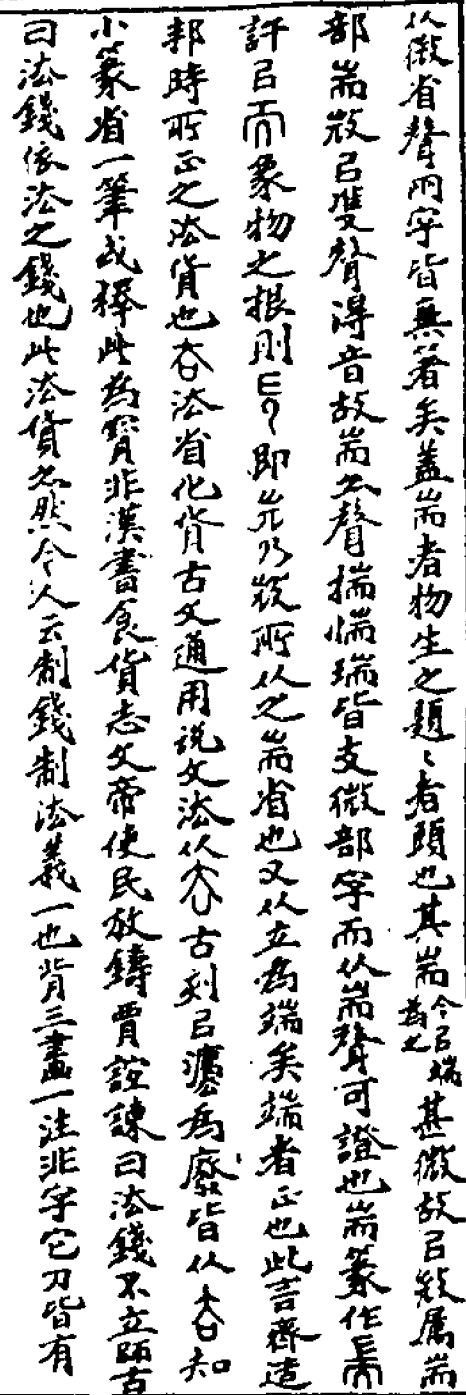 从微省聲兩字皆無著矣蓋耑者物生之題〻者頭也其耑今㠯端為之甚微故㠯𢼸屬耑
部耑𢼸㠯雙聲得音故耑亦聲揣惴瑞皆支微部字而从耑聲可證也耑篆作
許㠯而象物之根則即𢼸所从之耑省也又从立為端矣端者正也此言齊造
邦時所正之法貨也法省化貨古文通用説文法从古刻㠯灋為廢皆从知
小篆省一筆或釋此為寶非漢書食貨志文帝使民放鑄賈誼諫曰法錢不立師古
曰法錢依法之錢也此法貨亦然今人云制錢制法義一也背三畫一注非字它刀皆有